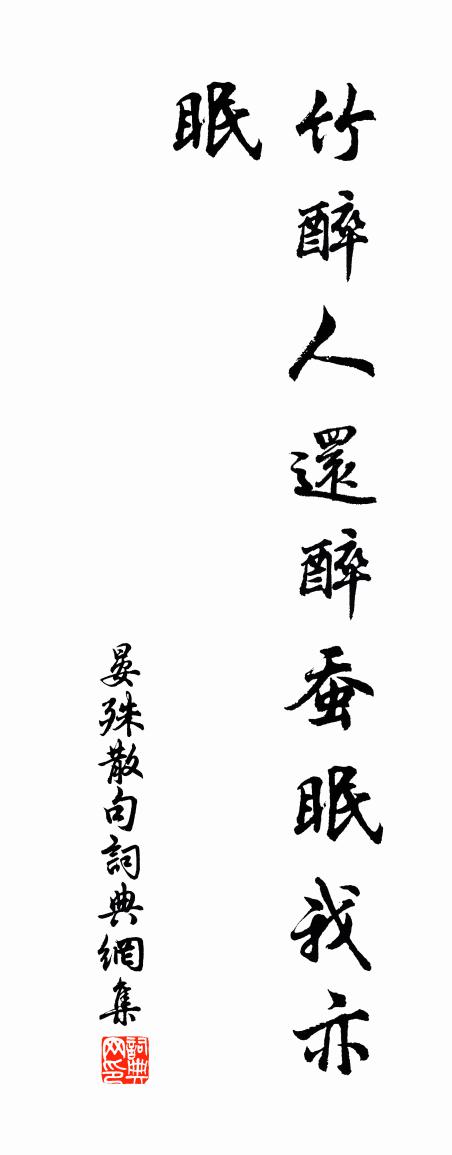 竹醉人還醉蚕眠我亦
眠
晏殊散句詞典網集
詞典网印